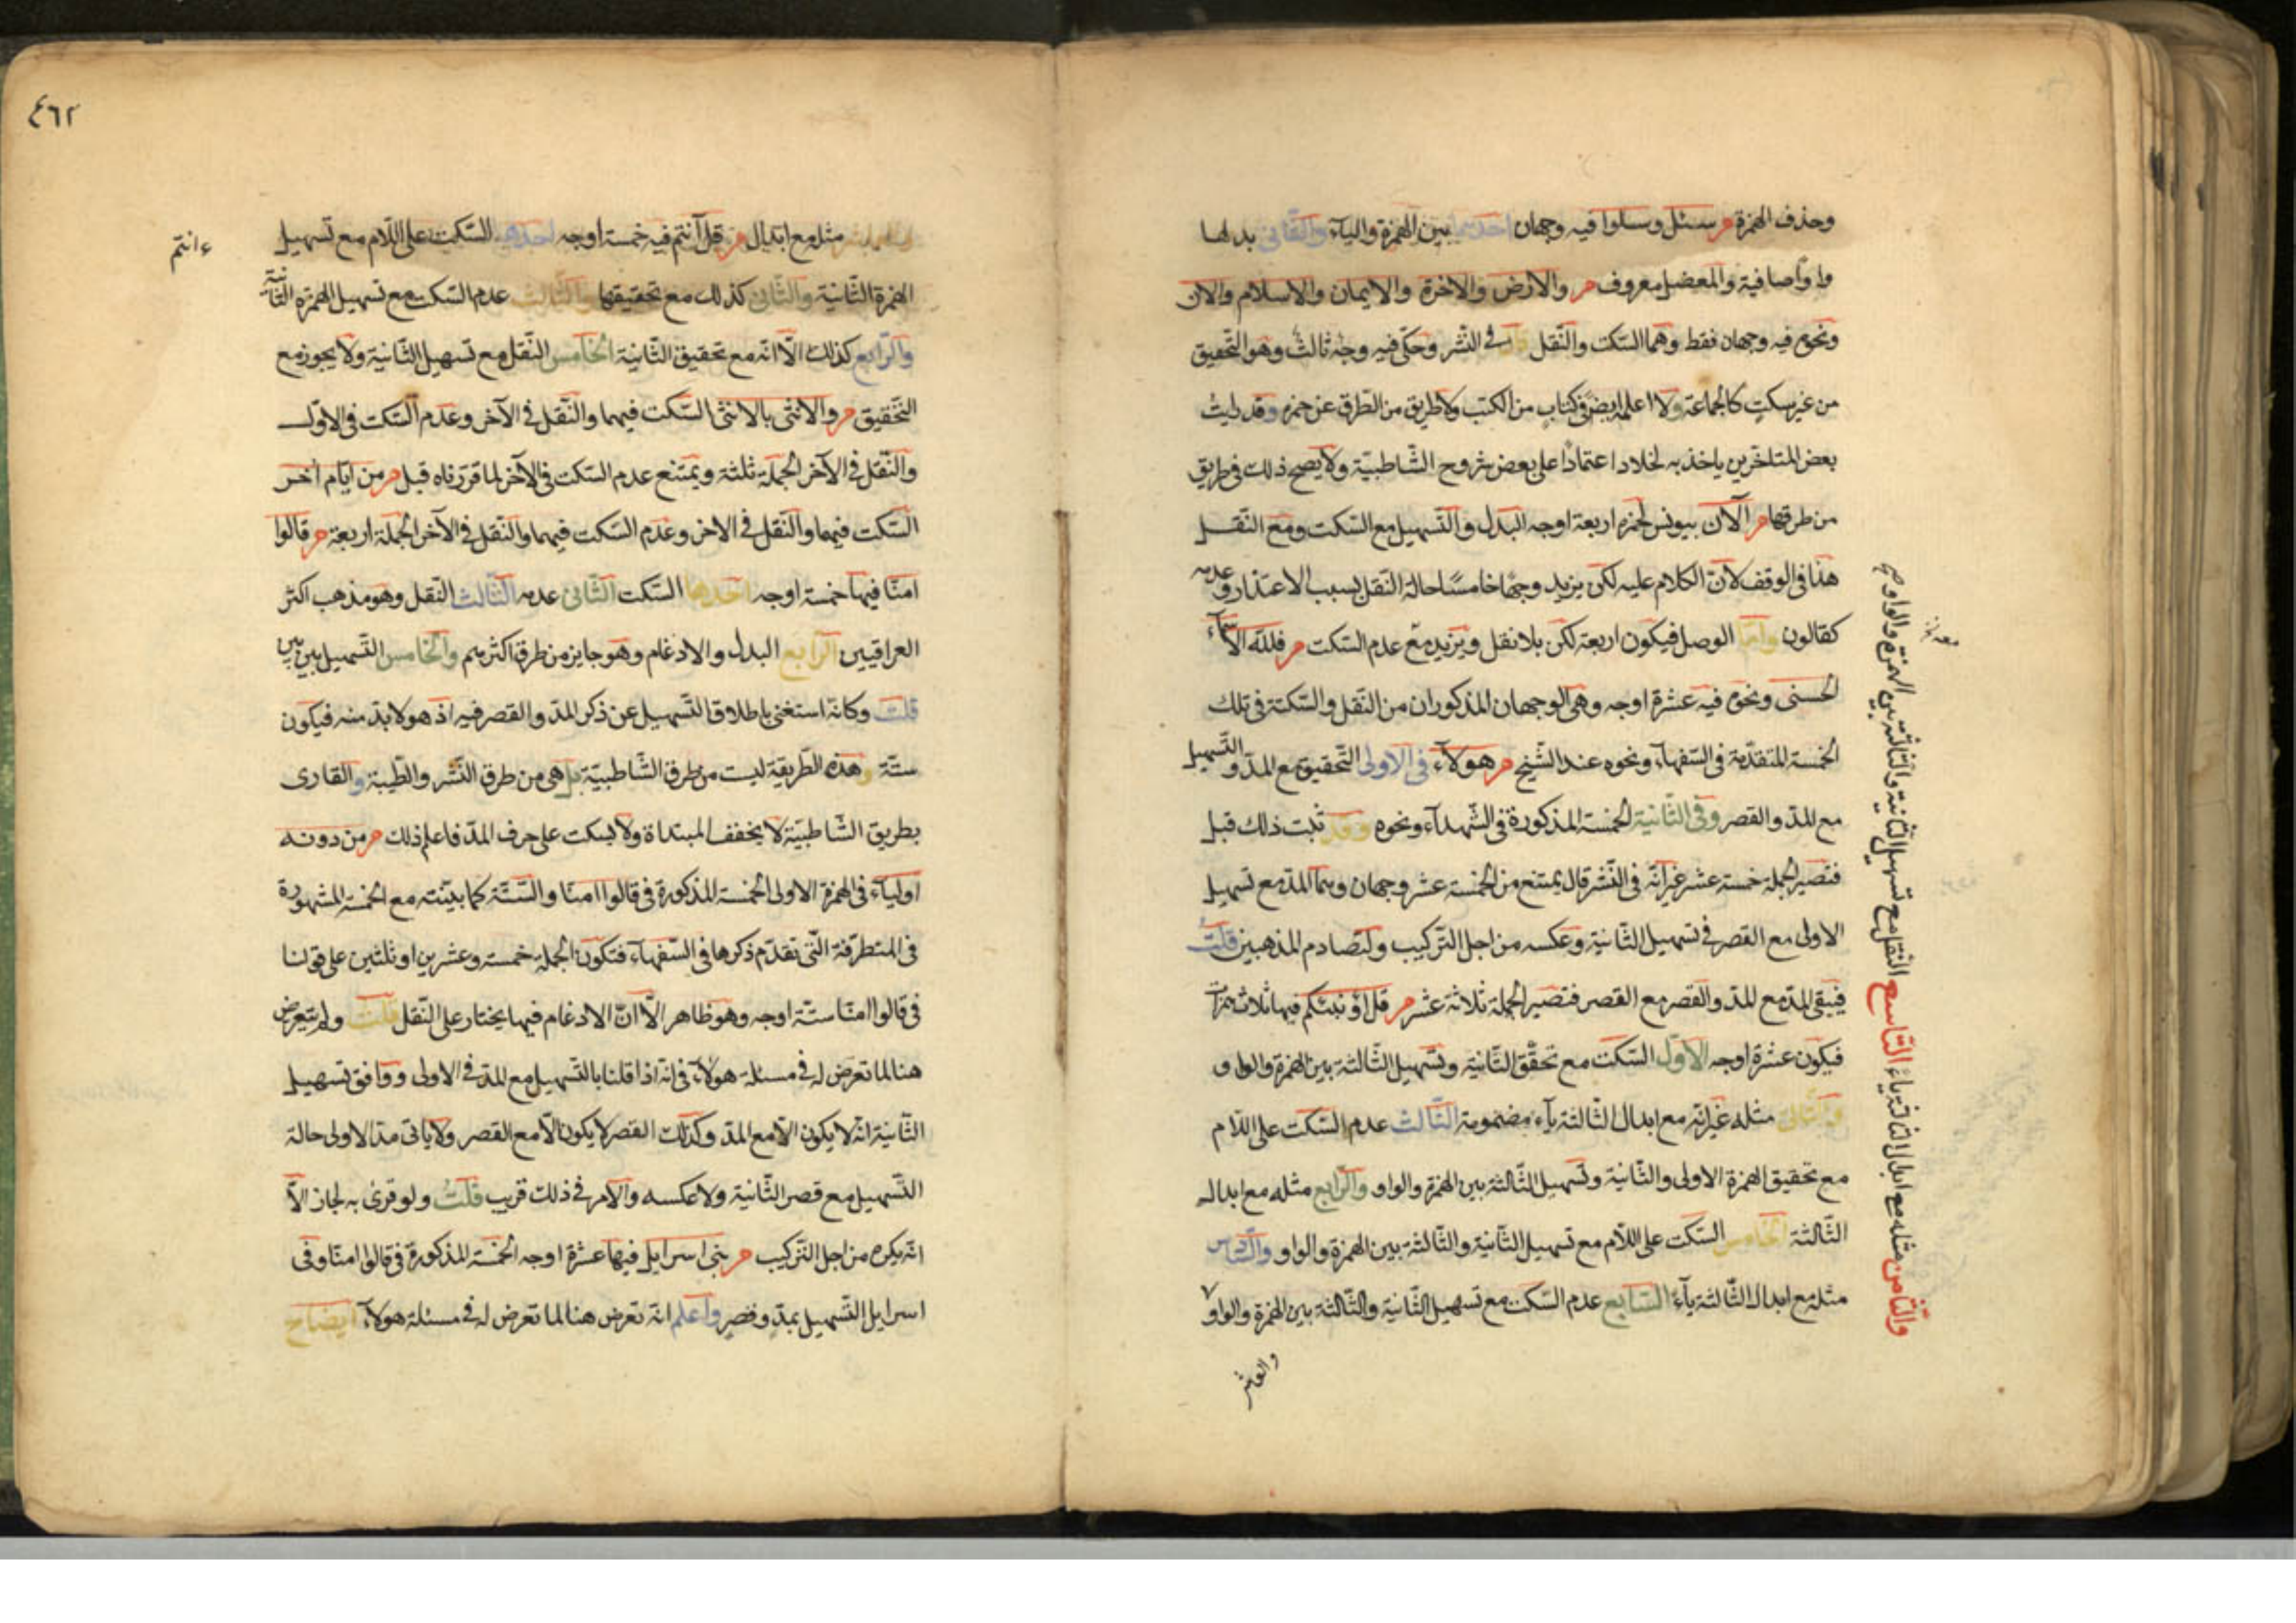 وحذف الهمزة م سئل وسئلوا فيه وجهان احدهما بين الهمزة والياء والثانى بدلها
واوا صافية والمعضل معروف م والارض والاخرة والايمان والاسلام والان
ونحوه فيه وجهان فقط وهما السكت والنقل قال فى النشر وحكى فيه وجه ثالث وهو التحقيق
من غير سكت كالجماعة ولا اعلمه نصا فى كتاب من الكتب ولا طريق من الطرق عن حمزه وقد رايت
بعض المتاخرين ياخذ به لخلاد اعتمادا على بعض شروح الشاطبية ولا يصح ذلك فى طريق
من طرقها م آلآن بيونس لحمزه اربعة اوجه البدل والتسهيل مع السكت ومع النقل
هذا فى الوقف لان الكلام عليه لكن يزيد وجها خامسا حالة النقل بسبب الاعتذار وعدمه
كقالون واما الوصل فيكون اربعة لكن بلا نقل ويزيد مع عدم السكت م فلله الاسماء
الحسنى ونحوه فيه عشرة اوجه وهى الوجهان المذكوران من النقل والسكتة فى تلك
الخمسة المتقدمة فى السفهاء ونحوه عند الشيخ م هولاء فى الاولى التحقيق مع المد والتسهيل
مع المد والقصر وفى الثانية الخمسة المذكورة فى الشهداء ونحوه وقد ثبت ذلك قبل
فتصير الجملة خمسة عشر غير انه فى النشر قال يمتنع من الخمسة عشر وجهان وهما المد مع تسهيل
الاولى مع القصر فى تسهيل الثانية وعكسه من اجل التركيب ولتصادم المذهبين قلت
فيبقى المد مع المد والقصر مع القصر فتصير الجملة ثلاثة عشر م قل اؤنبئكم فيها ثلاث همزات
فيكون عشرة اوجه الاول السكت مع تحقق الثانية وتسهيل الثالثة بين الهمزة والواو
والثانى مثله غير انه مع ابدال الثالثة ياء مضمومة الثالث عدم السكت على اللام
مع تحقيق الهمزة الاولى والثانية وتسهيل الثالثة بين الهمزة والواو والرابع مثله مع ابدال
الثالثة الخامس السكت على اللام مع تسهيل الثانية والثالثة بين الهمزة والواو والسادس
مثله مع ابدال الثالثة ياء السابع عدم السكت مع تسهيل الثانية والثالثة بين الهمزة والواو
والثامن مثله مع ابدال الثالثة ياء التاسع النقل مع تسهيل الثانية والثالثة بين الهمزة والواو صح
والعاشر
٤٦٢
مثله مع ابدال م قل أأنتم فيه خمسة اوجه احدها السكت على اللام مع تسهيل
ءانتم
الهمزة الثانية والثانى كذلك مع تحقيقها والثالث عدم السكت مع تسهيل الهمزة الثانية
والرابع كذلك الا انه مع تحقيق الثانية الخامس النقل مع تسهيل الثانية ولا يجوز مع
التحقيق م والانثى بالانثى السكت فيهما والنقل فى الآخر وعدم السكت فى الاول
والنقل فى الآخر الجملة ثلثة ويمتنع عدم السكت فى الآخر لما قررناه قبل م من ايام اخر
السكت فيهما والنقل فى الاخر وعدم السكت فيهما والنقل فى الآخر الجملة اربعة م قالوا
امنا فيها خمسة اوجه احدها السكت الثانى عدمه الثالث النقل وهو مذهب اكثر
العراقيين الرابع البدل والادغام وهو جايز من طرق اكثرهم والخامس التسهيل بين بين
قلت وكانه استغنى باطلاق التسهيل عن ذكر المد والقصر فيه اذ هو لا بد منه فيكون
ستة وهذه الطريقة ليست من طرق الشاطبية بل هى من طرق النشر والطيبة والقارى
بطريق الشاطبية لا يخفف المبتداة ولا يسكت على حرف المد فاعلم ذلك م من دونه
اولياء فى الهمزة الاولى الخمسة المذكورة فى قالوا امنا والستة كما بينته مع الخمسة المشهورة
فى المتطرفة التى تقدم ذكرها فى السفهاء فتكون الجملة خمسة وعشرين او ثلثين على قولنا
فى قالوا امنا ستة اوجه وهو ظاهر الا ان الادغام فيها يختار على النقل قلت ولم يتعرض
هنا لما تعرض له فى مسئلة هولاء فى انه اذا قلنا بالتسهيل مع المد فى الاولى ووافق تسهيل
الثانية انه لا يكون الا مع المد وكذلك القصر لا يكون الا مع القصر ولا ياتى مد الاولى حالة
التسهيل مع قصر الثانية ولا عكسه والامر فى ذلك قريب قلت ولو قرئ به لجاز الا
انه يكره من اجل التركيب م بنى اسرايل فيها عشرة اوجه الخمسة المذكورة فى قالوا امنا وفى
اسرايل التسهيل بمد وقصر واعلم انه تعرض هنا لما تعرض له فى مسئلة هولاء ايضاح